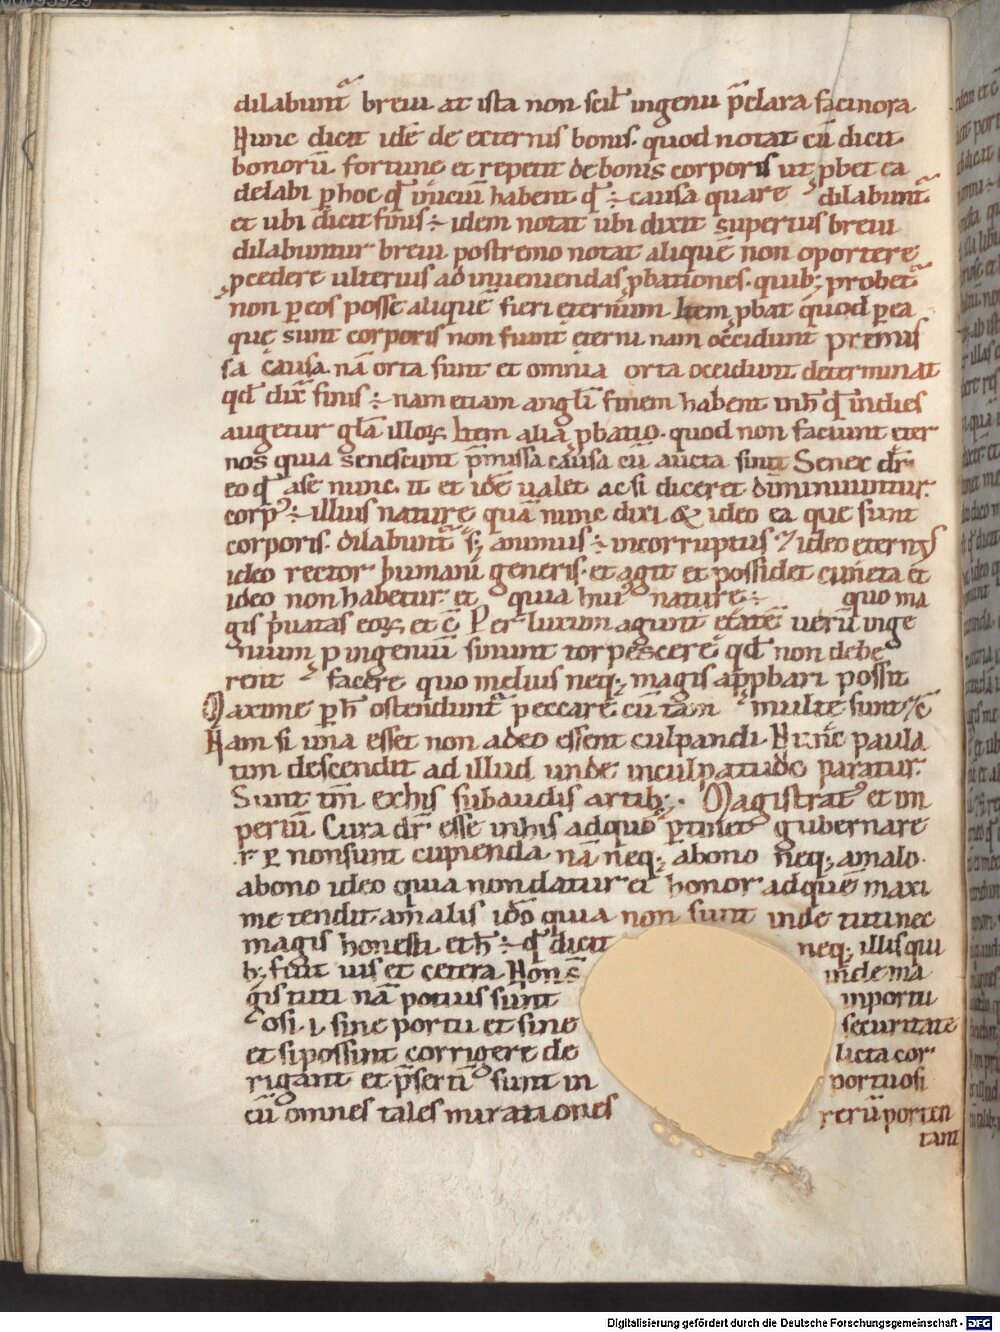 dilabunt᷑ breui at ista non scil̄ ingenii p̄clara facinora
Nunc dicit idē de externis bonis. quod notat cū dicit
bonorū fortune et repetit de bonis corporis ut p̱bet ea
delabi p̱ hoc qđ iniciū habent qđ ÷ causa quare dilabunt᷑
et ubi dicit finis ÷ idem notat ubi dixit superius breui
dilabuntur breui postremo notat aliquē non oportere
p̱cedere ulterius ad inueniendas p̱bationes. quib; probet᷑
non p̱ eos posse aliquē fieri eternum. Item p̱bat quod p̱ ea
que sunt corporis non fiunt eterni nam occidunt premis
sa causa. nā orta sunt et omnia orta occidunt. determinat
qđ dix̄ finis ÷ nam etiam angl̄i finem habent in h̄ qđ indies
augetur gl̄a illoꝝ Item alia p̱batio. quod non faciunt eter
nos quia senescunt p̄missa causa cū aucta sint Senex dr̄
eo qđ ase nunc it et idē ualet ac si diceret diminuuntur.
corpꝰ ÷ illius nature quā nunc dixi & ideo ea que sunt
corporis. dilabunt᷑ s; animus ÷ incorruptus ⁊ ideo eternꝰ
ideo rector humani generis. et agit et possidet cuncta et
ideo non habetur. et quia huiꝰ nature ÷ quo ma
gis p̱uatas eoꝝ et c̄ Per luxum agunt etatē uerū inge
nium p̱ ingeniū sinunt torpescere qđ non debe
rent facere quo melius neq; magis app̱bari possit
Maxime p̱ h̄ ostendunt᷑ peccare cū tam multe sunt ⁊ c̄
Nam si una esset non adeo essent culpandi. Nunc paula
tim descendit ad illud unde inculpatudo paratur.
Sunt tm̄ ex his subaudis artib;. Magistratꝰ et im
periū. Cura dr̄ esse in his ad quo p̱tinet gubernare
.r. p̱. non sunt cupienda nā neq; abono neq; amalo.
abono ideo quia non datur ei honor ad quē maxi
me tendit. amalis idō quia non sunt inde tuti nec
magis honesti et h̄ ÷ qđ dicit neq; illis qui
h; fuit uis et cetera Honꝰ inde ma
gis tuti nā potius sunt inportu
osi .i. sine portu et sine securitate
et si possint corrigere de licta cor
rigant et p̄sertī sunt in portuosi
cū omnes tales mutationes rerū porten
tant
Digitalisierung gefördert durch die Deutsche Forschungsgemeinschaft - DFG